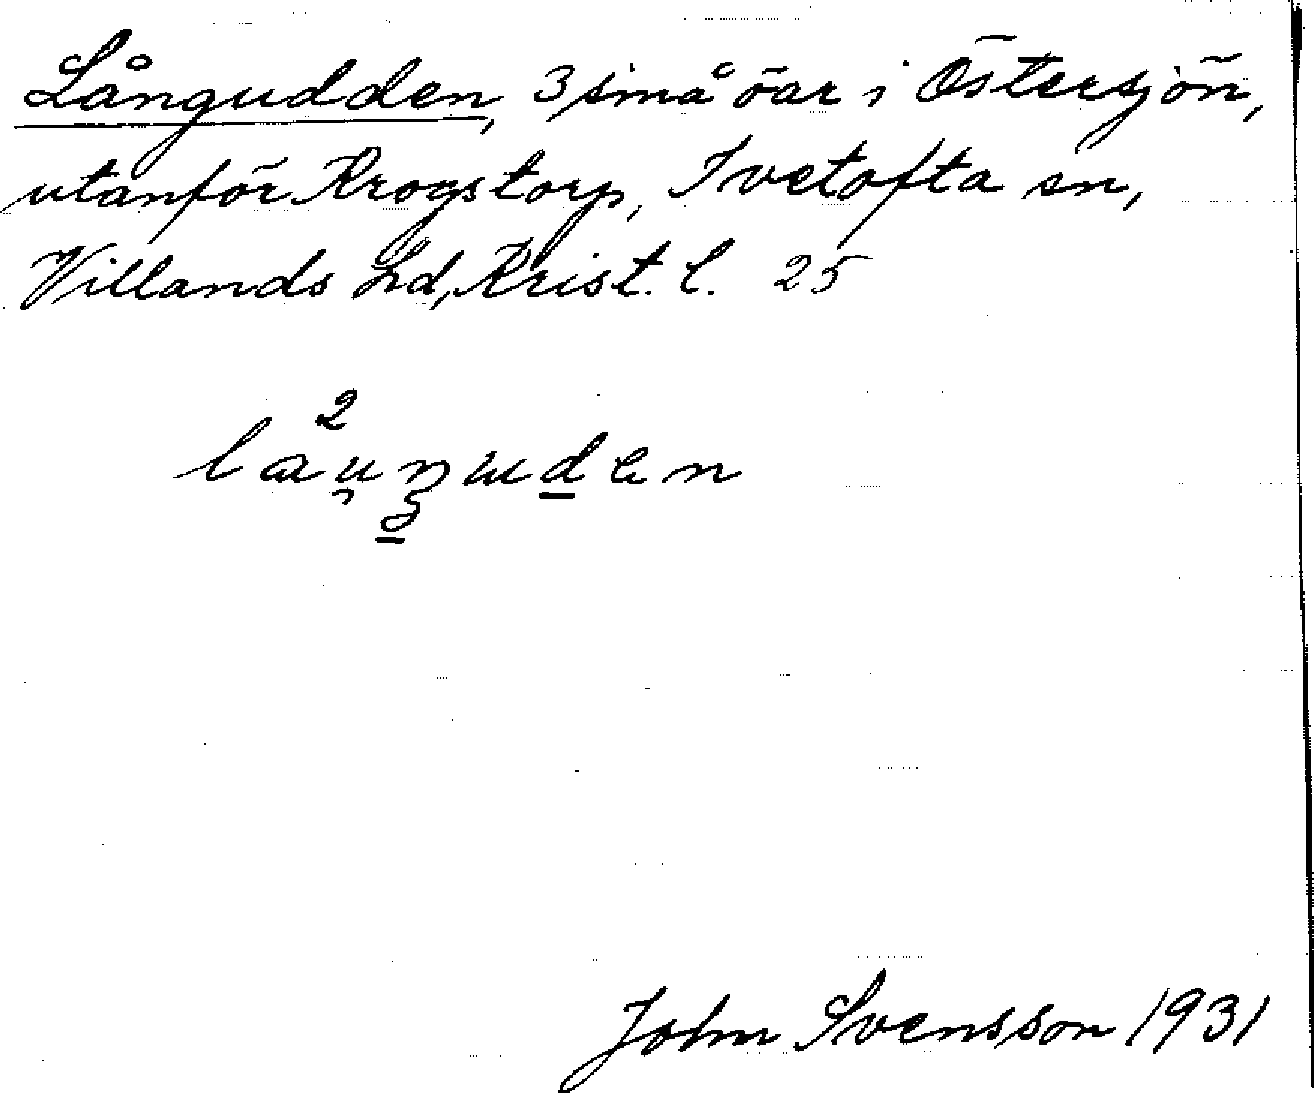 Långudden, 3 små öar i Östersjön,
utanför Krogstorp, Ivetofta sn,
Villands hd, Krist. l. 25
John Svensson 1931